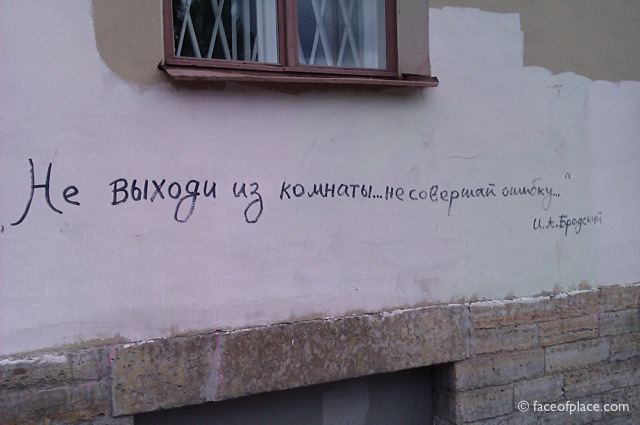 „Не выходи из комнаты...не совершай ошибку...“
И.А.Бродский
© faceofplace.com